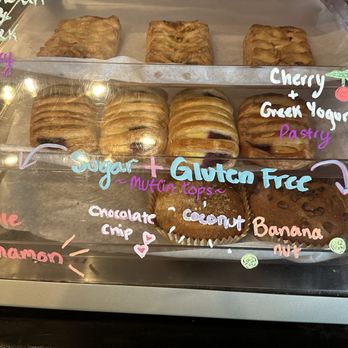 Cherry
+
Greek Yogur
Pastry
Sugar + Gluten Free
~ Muffin Tops ~
Chocolate
chip
coconut
Banana
nut